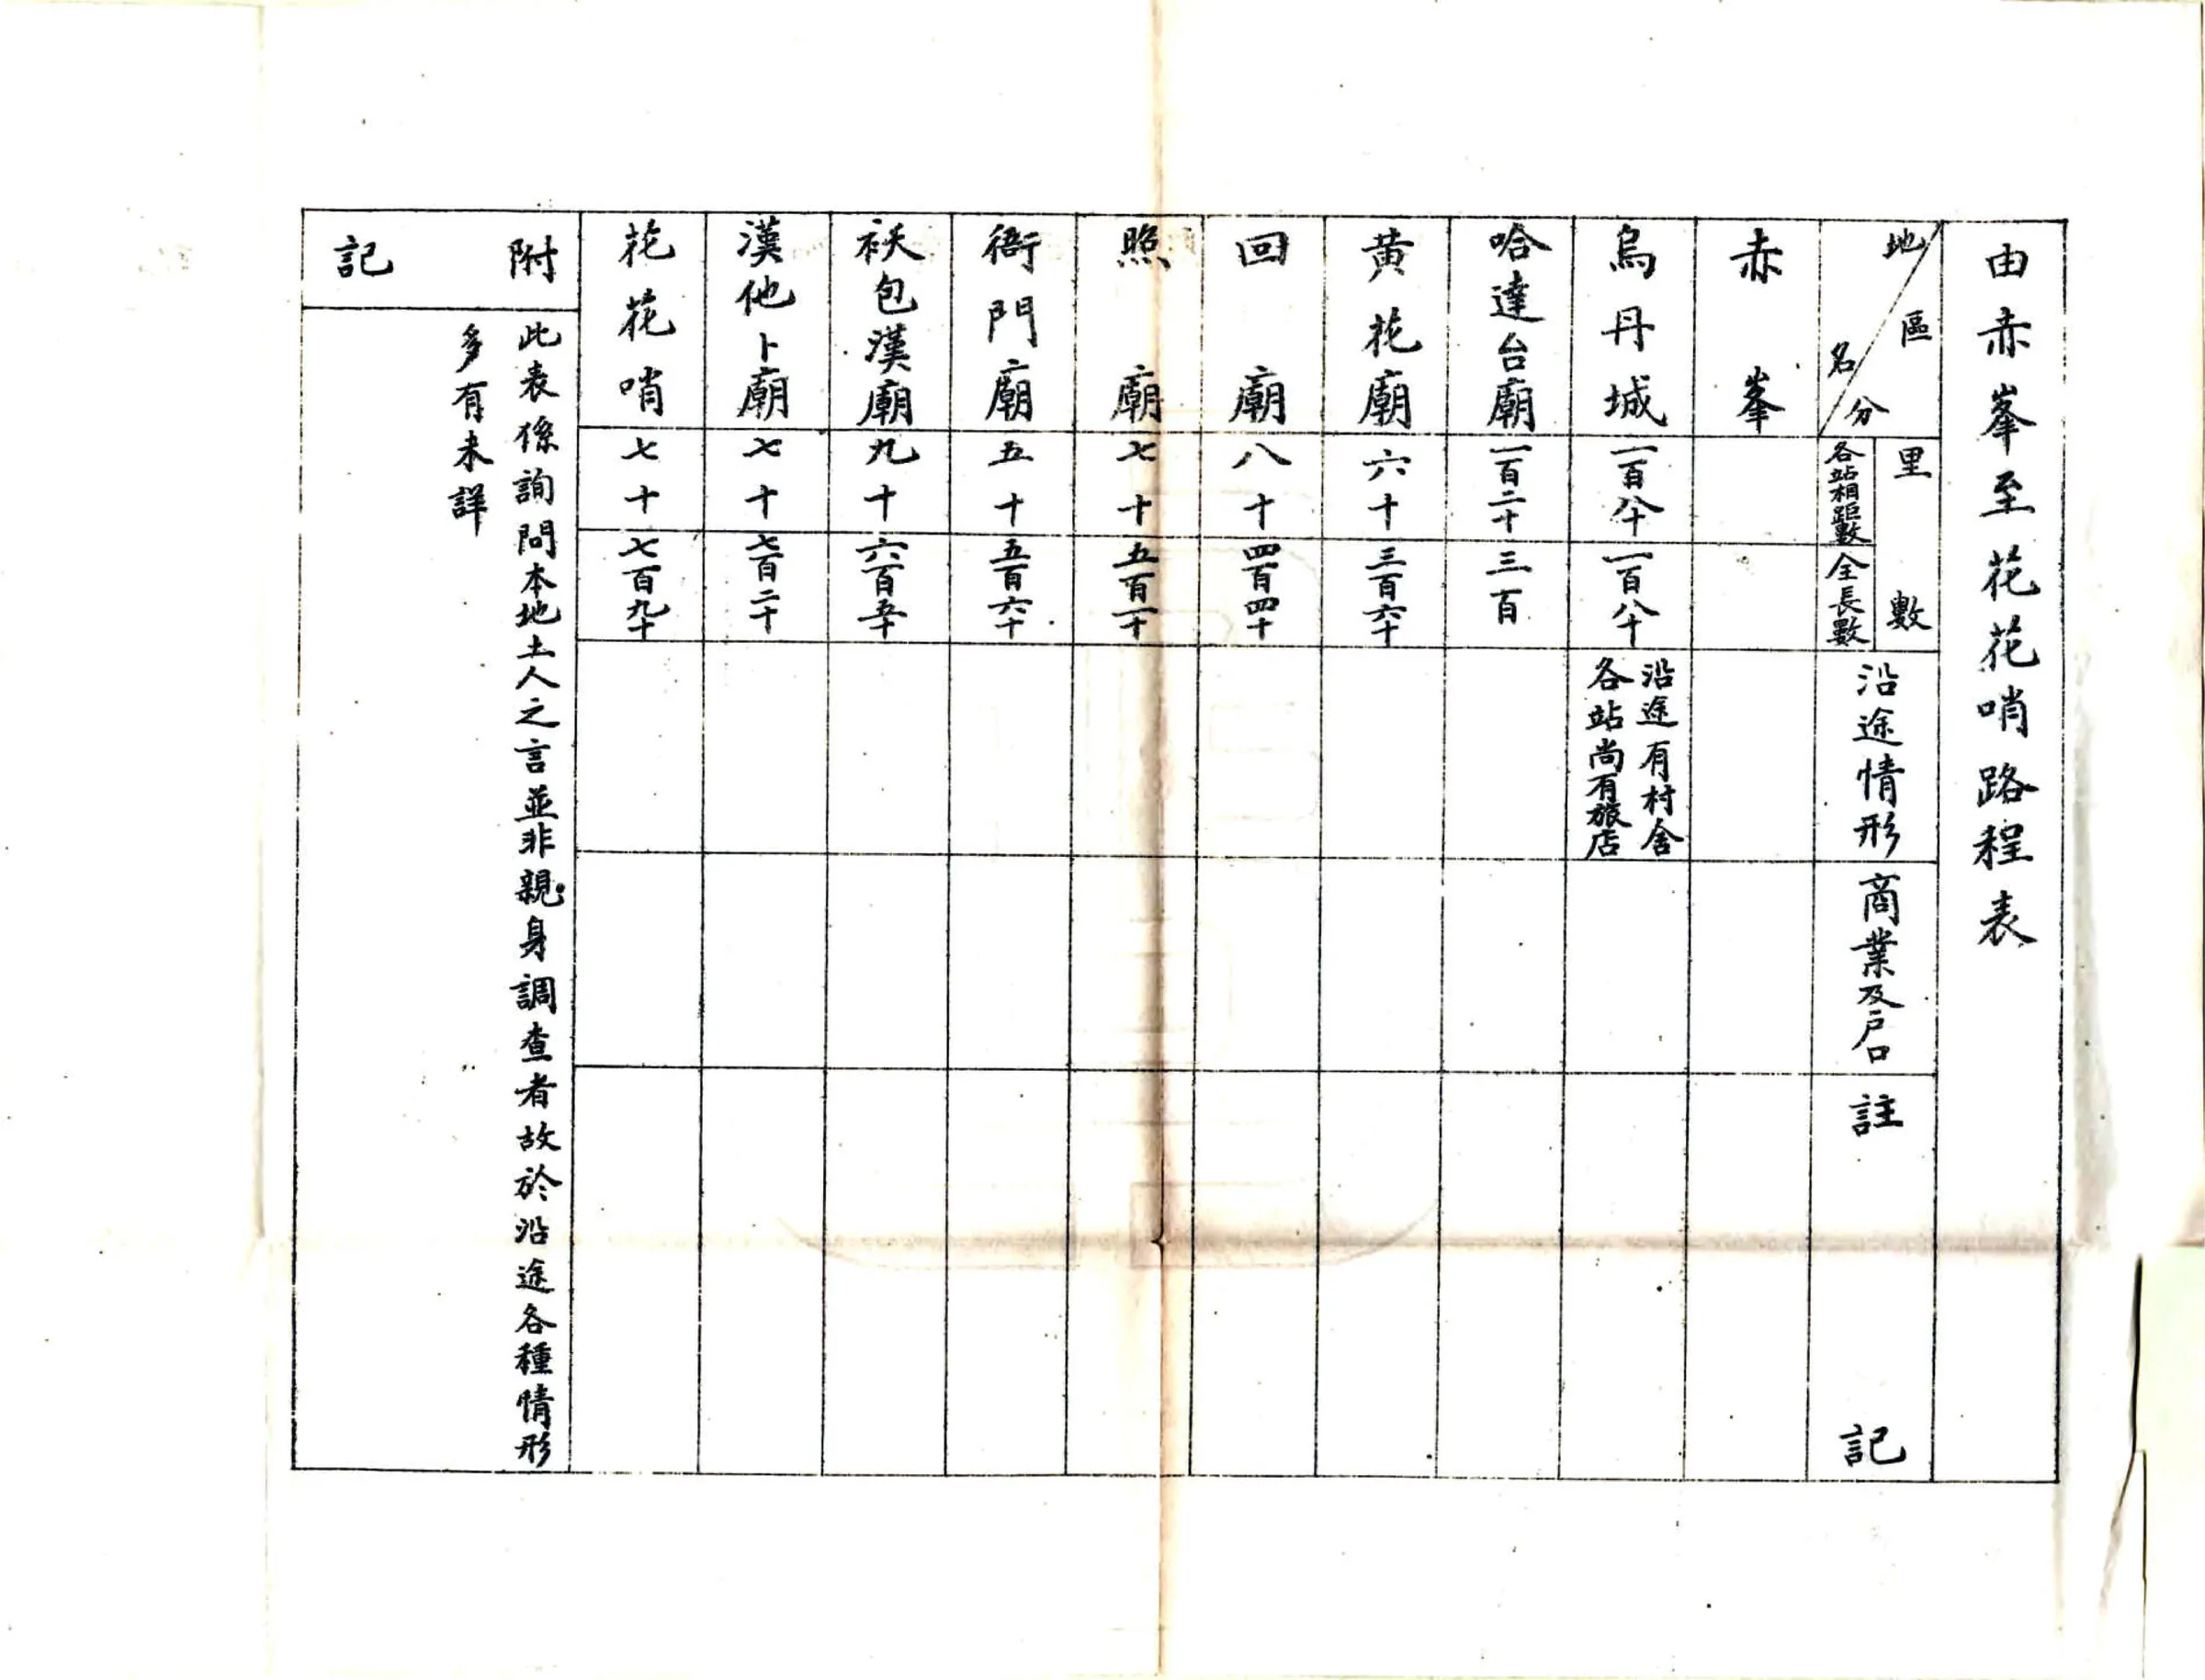 由赤峯至花花哨路程表
地名 區分
里數
各站相距數
全長數
沿途情形
商業及戶口
註記
赤峯
烏丹城
一百八十
一百八十
沿途有村舍
各站尚有旅店
哈達台廟
一百二十
三百
黄花廟
六十
三百六十
回廟
八十
四百四十
照廟
七十
五百一十
衙門廟
五十
五百六十
袄包漢廟
九十
六百五十
漢他卜廟
七十
七百二十
花花哨
七十
七百九十
附記
此表係詢問本地土人之言並非親身調查者故於沿途各種情形
多有未詳